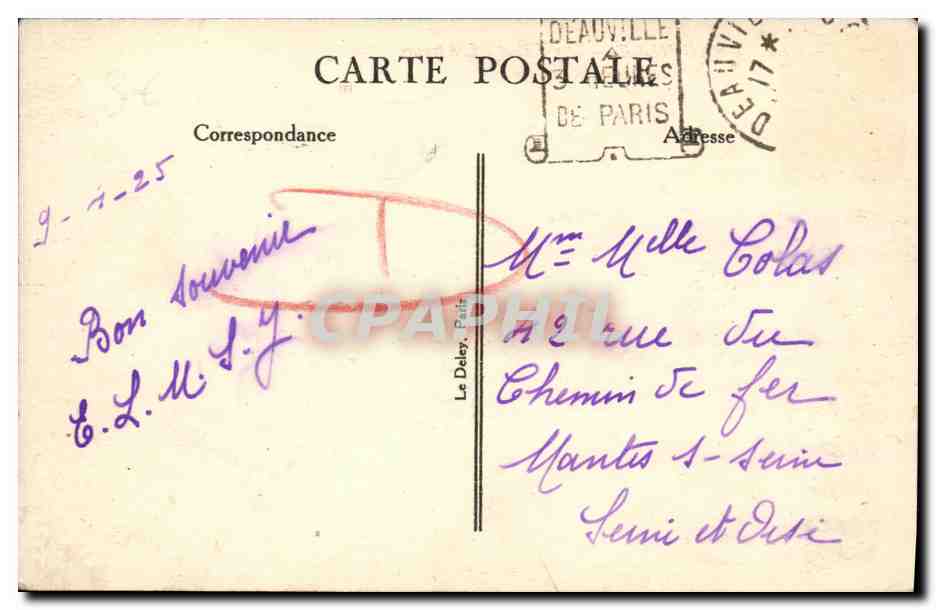 DEAUVILLE
3 HEURES
DE PARIS
DEAUVI
17 *
CARTE POSTALE
Correspondance
Adresse
9-1-25
Bon souvenir
E.L.M.S.Y.
T
Le Deley, Paris
CPAPHIL
Mme Melle Colas
42 rue du
Chemin de fer
Mantes s-Seine
Seine et Oise